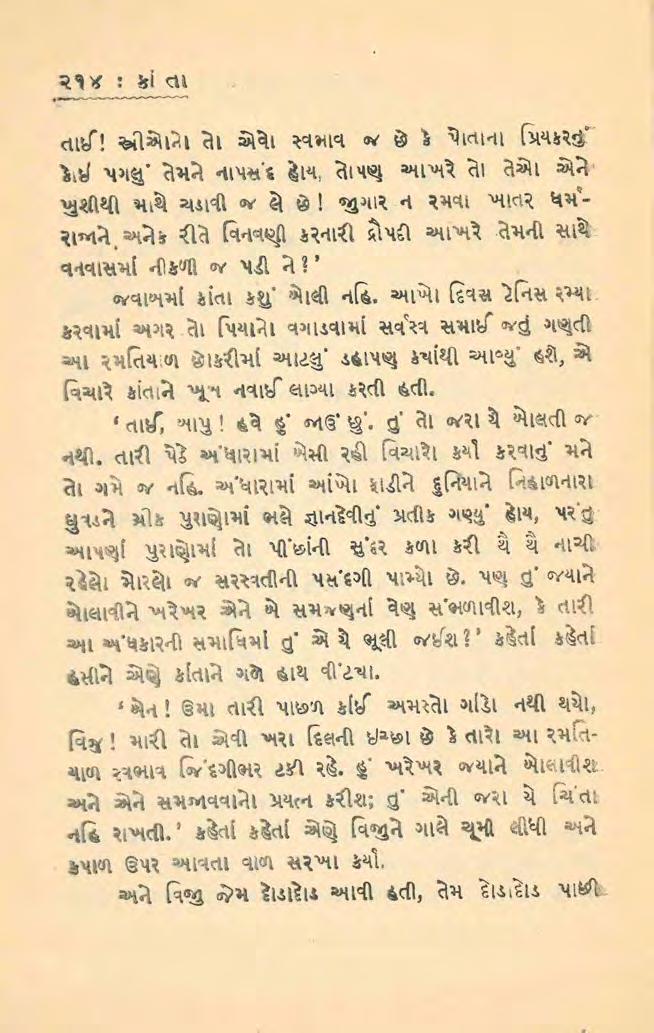 ૨૧૪ : કાં તા
તાઈ! સ્ત્રીઓનો તો એવો સ્વભાવ જ છે કે પોતાના પ્રિયકરનું
કોઈ પગલું તેમને નાપસંદ હોય, તોપણ આખરે તો તેઓ એને
ખુશીથી માથે ચડાવી જ લે છે! જુગાર ન રમવા ખાતર ધર્મ-
રાજાને અનેક રીતે વિનવણી કરનારી દ્રૌપદી આખરે તેમની સાથે
વનવાસમાં નીકળી જ પડી ને?'
જવાબમાં કાંતા કશું બોલી નહિ. આખો દિવસ ટેનિસ રમ્યા
કરવામાં અગર તો પિયાનો વગાડવામાં સર્વસ્વ સમાઈ જતું ગણતી
આ રમતિયાળ છોકરીમાં આટલું ડહાપણ કયાંથી આવ્યું હશે, એ
વિચારે કાંતાને ખૂબ નવાઈ લાગ્યા કરતી હતી.
'તાઈ, બાપુ! હવે હું જાઉં છું. તું તો જરા યે બોલતી જ
નથી. તારી પેઠે અંધારામાં બેસી રહી વિચારો કર્યા કરવાનું મને
તો ગમે જ નહિ. અંધારામાં આંખો ફાડીને દુનિયાને નિહાળનારા
ઘુવડને ગ્રીક પુરાણોમાં ભલે જ્ઞાનદેવીનું પ્રતીક ગણ્યું હોય, પરંતુ
આપણાં પુરાણોમાં તો પીંછાંની સુંદર કળા કરી થૈ થૈ નાચી
રહેલો મોરલો જ સરસ્વતીની પસંદગી પામ્યો છે. પણ તું જયાને
બોલાવીને ખરેખર એને બે સમજણનાં વેણ સંભળાવીશ, કે તારી
આ અંધકારની સમાધિમાં તું એ યે ભૂલી જઈશ?' કહેતાં કહેતાં
હસીને એણે કાંતાને ગળે હાથ વીંટયા.
'બેન! ઉમા તારી પાછળ કાંઈ અમસ્તો ગાંડો નથી થયો,
વિજુ! મારી તો એવી ખરા દિલની ઇચ્છા છે કે તારો આ રમતિ-
યાળ સ્વભાવ જિંદગીભર ટકી રહે. હું ખરેખર જયાને બોલાવીશ
અને એને સમજાવવાનો પ્રયત્ન કરીશ; તું એની જરા યે ચિંતા
નહિ રાખતી.' કહેતાં કહેતાં એણે વિજુને ગાલે ચૂમી લીધી અને
કપાળ ઉપર આવતા વાળ સરખા કર્યા.
અને વિજુ જેમ દોડાદોડ આવી હતી, તેમ દોડાદોડ પાછી